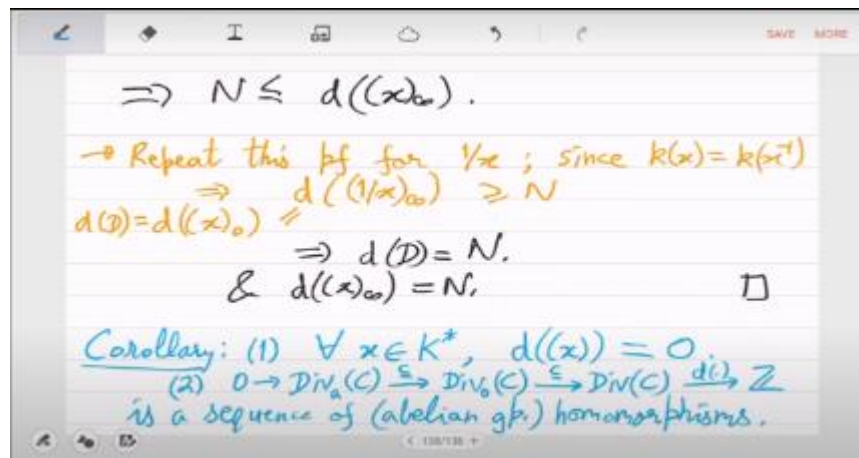 SAVE MORE
⇒ N ≤ d((x)∞).
→ Repeat this pf for 1/x ; since k(x) = k(x⁻¹)
⇒ d((1/x)∞) ≥ N
d(D) = d((x)₀) //
⇒ d(D) = N.
& d((x)∞) = N. □
Corollary: (1) ∀ x ∈ K*, d((x)) = 0.
(2) 0 → Divₐ(C) ⊆→ Div₀(C) ⊆→ Div(C) d(·)→ ℤ
is a sequence of (abelian gp.) homomorphisms.
< 136/136 +